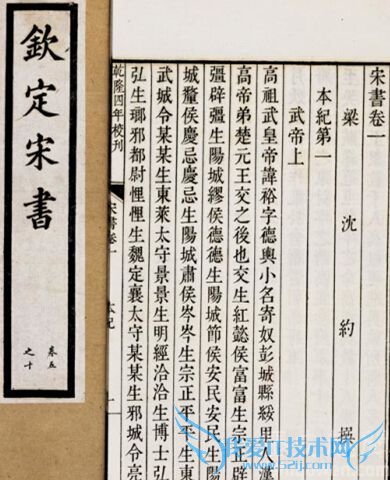 宋書卷一
梁 沈 約 撰
本紀第一
武帝上
高祖武皇帝諱裕字德輿小名寄奴彭城縣綏里人漢
高帝弟楚元王交之後也交生紅懿侯富富生宗正辟
彊辟彊生陽城繆侯德德生陽城節侯安民安民生陽
城釐侯慶忌慶忌生陽城肅侯岑岑生宗正平平生東
武城令某某生東萊太守景景生明經洽洽生博士弘
弘生瑯邪都尉悝悝生魏定襄太守某某生邪城令亮
乾隆四年校刊 宋書卷一 本紀 一
欽定宋書
卷五
之十
我爱IT技术网
www.52ij.com